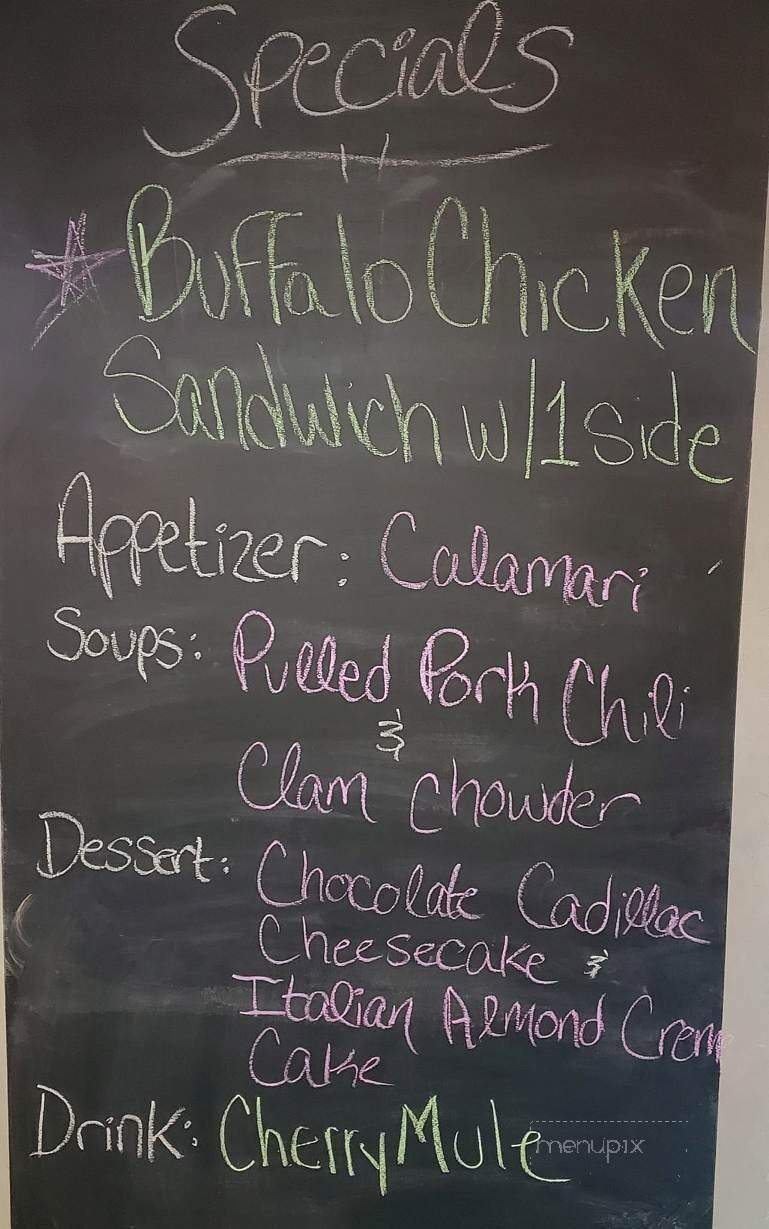 Specials
Buffalo Chicken
Sandwich w/1 side
Appetizer: Calamari
Soups: Pulled Pork Chili
&
Clam chowder
Dessert: Chocolate Cadillac
Cheesecake &
Italian Almond Creme
Cake
Drink: Cherry Mule
menupix